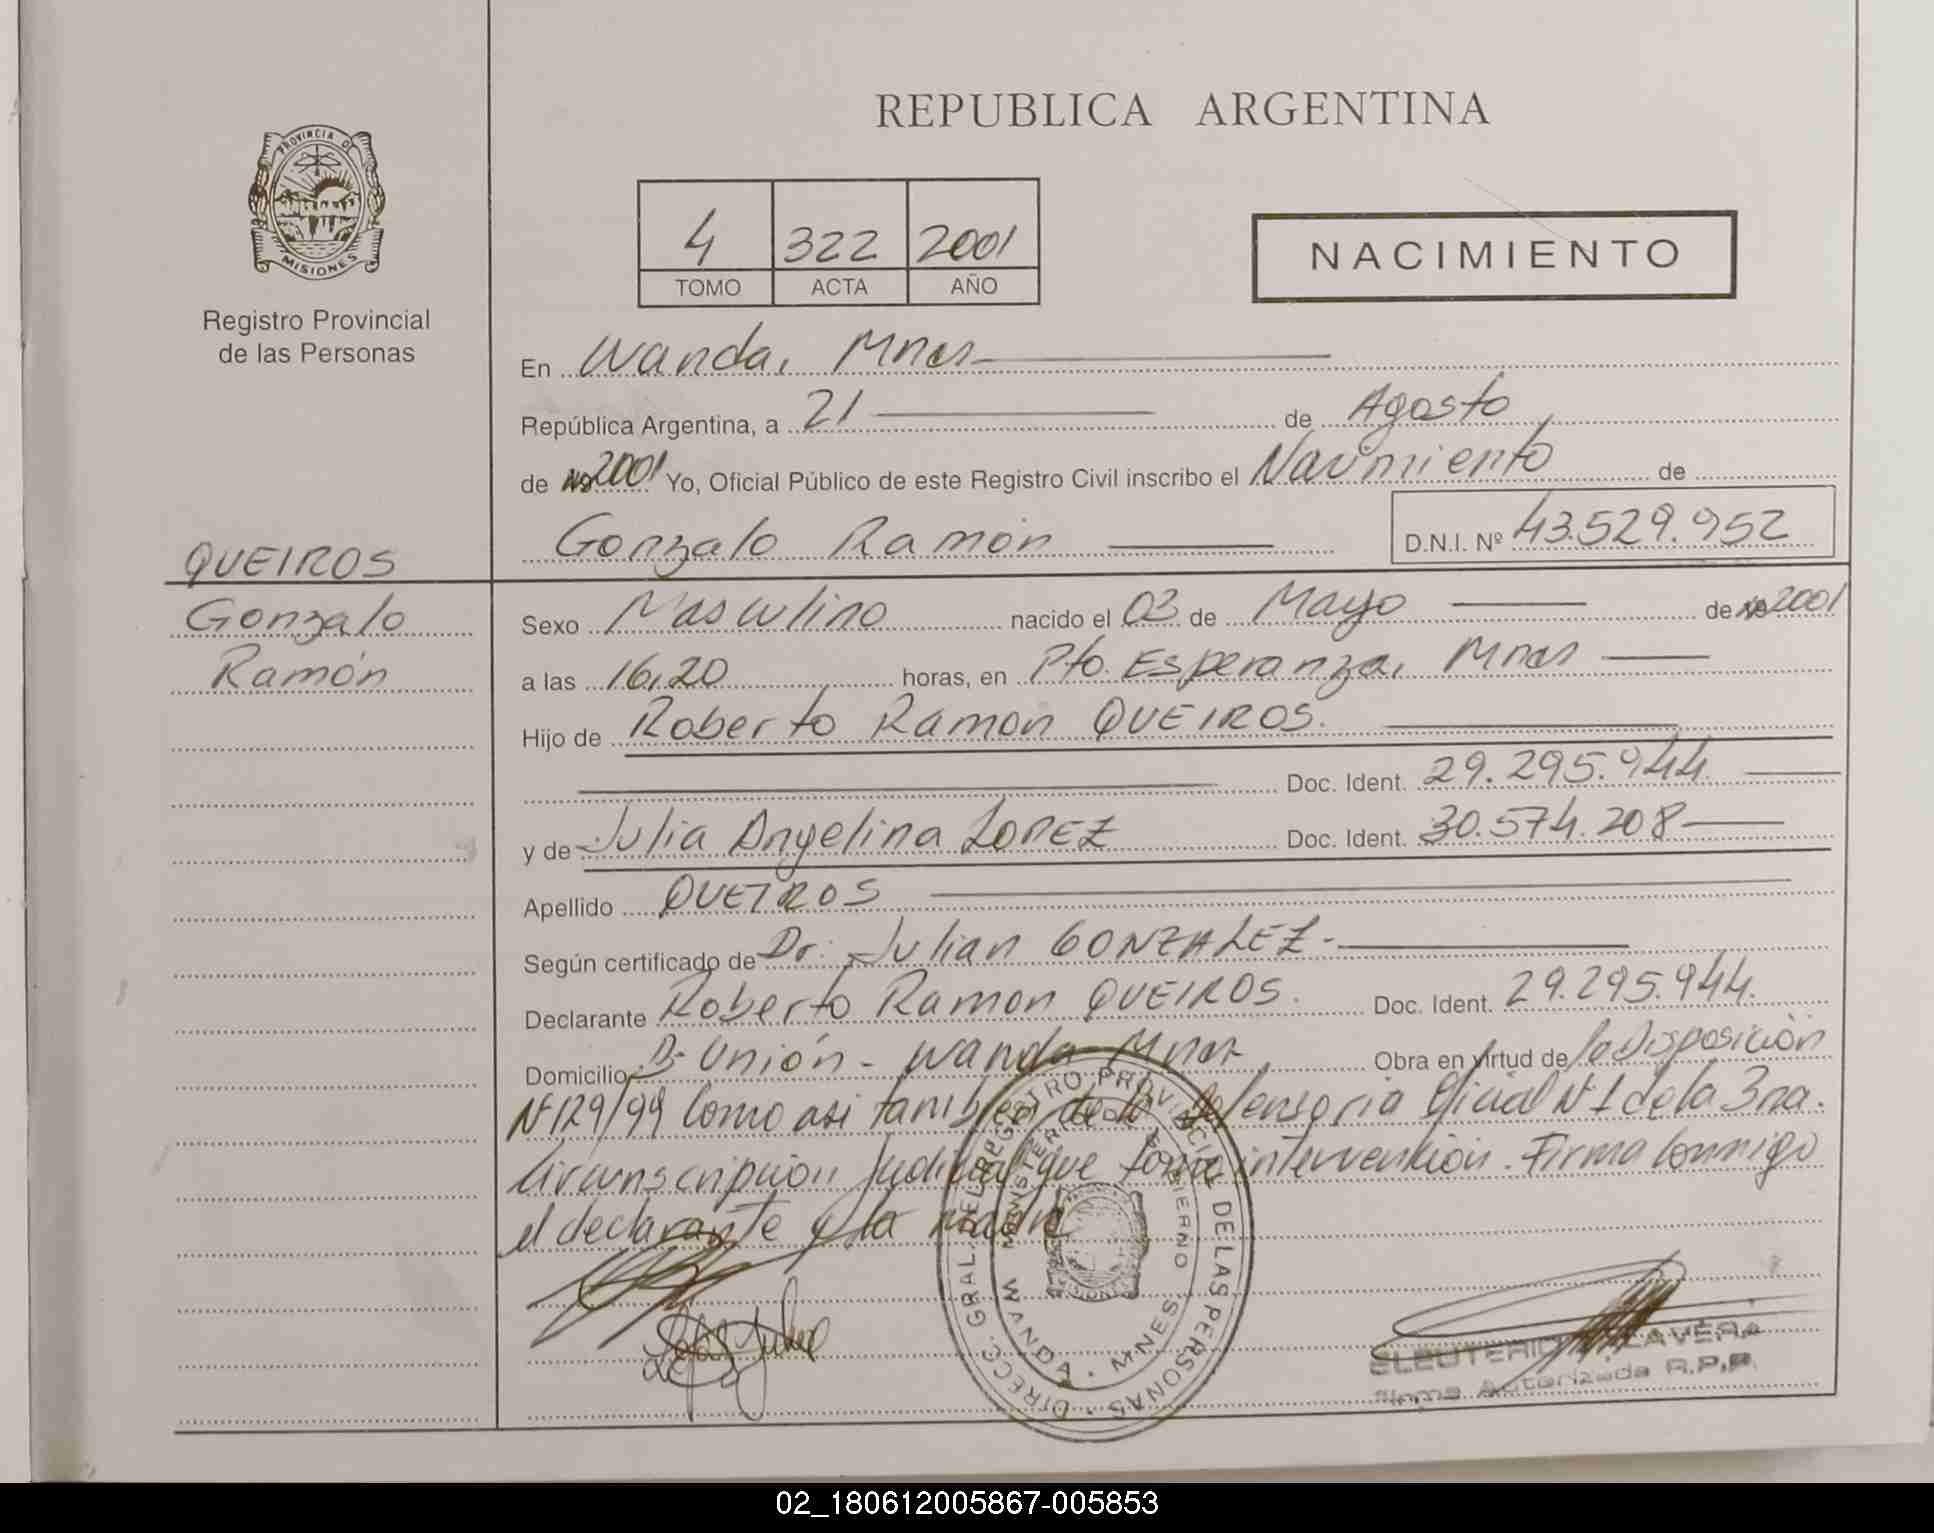 PROVINCIA DE
MISIONES
Registro Provincial
de las Personas
QUEIROS
Gonzalo
Ramón
REPUBLICA ARGENTINA
4 322 2001
TOMO ACTA AÑO
NACIMIENTO
En Wanda, Mnes
República Argentina, a 21 de Agosto
de 2001 Yo, Oficial Público de este Registro Civil inscribo el Nacimiento de
Gonzalo Ramón D.N.I. Nº 43.529.952
Sexo Masculino nacido el 03 de Mayo de 2001
a las 16,20 horas, en Pto. Esperanza, Mnes
Hijo de Roberto Ramon QUEIROS.
Doc. Ident. 29.295.944.
y de Julia Angelina LOPEZ Doc. Ident. 30.574.208
Apellido QUEIROS
Según certificado de Dr. Julian GONZALEZ.-
Declarante Roberto Ramon QUEIROS. Doc. Ident. 29.295.944.
Domicilio Bº Unión - Wanda Mnes Obra en virtud de la Disposición
Nº 129/99 Como asi tambien de la Defensoria Oficial Nº 1 de la 3ra.
Circunscripción Judicial que toma intervención. Firma Conmigo
el declarante y la madre
DIRECC. GRAL. DEL REGISTRO PROVINCIAL DE LAS PERSONAS
MINISTERIO DE GOBIERNO
WANDA - MNES
ELEUTERIO TALAVERA
Firma Autorizada R.P.P.
02_180612005867-005853